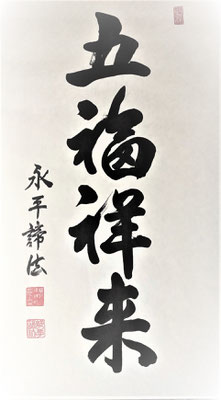 五福祥来
永平諦法